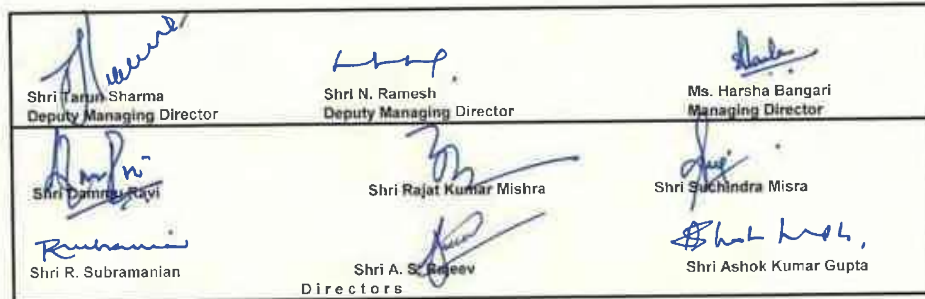 Shri Tarun Sharma
Deputy Managing Director
Shri N. Ramesh
Deputy Managing Director
Ms. Harsha Bangari
Managing Director
Shri Dammu Ravi
Shri Rajat Kumar Mishra
Shri Suchindra Misra
Shri R. Subramanian
Shri A. S. Rajeev
Shri Ashok Kumar Gupta
Directors